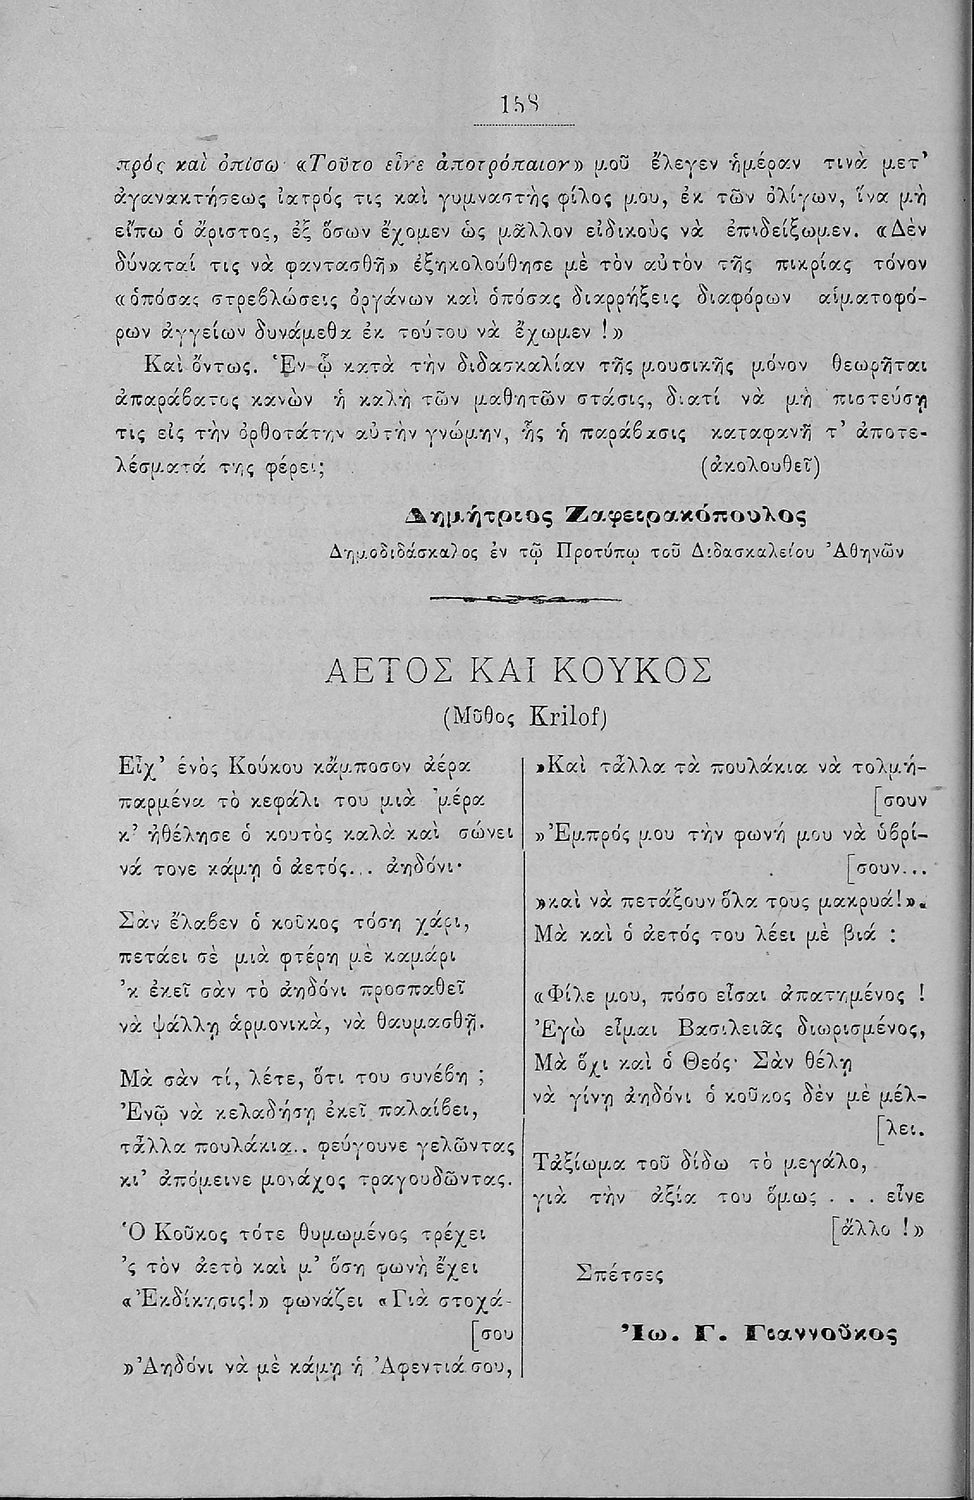 158
πρός καὶ ὀπίσω· «Τοῦτο εἶνε ἀποτρόπαιον» μοῦ ἔλεγεν ἡμέραν τινὰ μετ’
ἀγανακτήσεως ἰατρός τις καὶ γυμναστὴς φίλος μου, ἐκ τῶν ὀλίγων, ἵνα μὴ
εἴπω ὁ ἄριστος, ἐξ ὅσων ἔχομεν ὡς μᾶλλον εἰδικοὺς νὰ ἐπιδείξωμεν. «Δὲν
δύναταί τις νὰ φαντασθῇ» ἐξηκολούθησε μὲ τὸν αὐτὸν τῆς πικρίας τόνον
«ὁπόσας στρεβλώσεις ὀργάνων καὶ ὁπόσας διαρρήξεις διαφόρων αἱματοφό-
ρων ἀγγείων δυνάμεθα ἐκ τούτου νὰ ἔχωμεν !»
Καὶ ὄντως. Ἐν ᾧ κατὰ τὴν διδασκαλίαν τῆς μουσικῆς μόνον θεωρῆται
ἀπαράβατος κανὼν ἡ καλὴ τῶν μαθητῶν στάσις, διατί νὰ μὴ πιστεύσῃ
τις εἰς τὴν ὀρθοτάτην αὐτὴν γνώμην, ἧς ἡ παράβασις καταφανῆ τ’ ἀποτε-
λέσματά της φέρει; (ἀκολουθεῖ)
Δημήτριος Ζαφειρακόπουλος
Δημοδιδάσκαλος ἐν τῷ Προτύπῳ τοῦ Διδασκαλείου Ἀθηνῶν
ΑΕΤΟΣ ΚΑΙ ΚΟΥΚΟΣ
(Μῦθος Krilof)
Εἶχ’ ἑνὸς Κούκου κἄμποσον ἀέρα
παρμένα τὸ κεφάλι του μιὰ ’μέρα
κ’ ἠθέλησε ὁ κουτὸς καλὰ καὶ σώνει
νά τονε κάμῃ ὁ ἀετός... ἀηδόνι·
Σὰν ἔλαβεν ὁ κοῦκος τόση χάρι,
πετάει σὲ μιὰ φτέρη μὲ καμάρι
’κ ἐκεῖ σὰν τὸ ἀηδόνι προσπαθεῖ
νὰ ψάλλῃ ἁρμονικὰ, νὰ θαυμασθῇ.
Μὰ σὰν τί, λέτε, ὅτι του συνέβη ;
Ἐνῷ νὰ κελαδήσῃ ἐκεῖ παλαίβει,
τἆλλα πουλάκια.. φεύγουνε γελῶντας
κι’ ἀπόμεινε μονάχος τραγουδῶντας.
Ὁ Κοῦκος τότε θυμωμένος τρέχει
’ς τὸν ἀετὸ καὶ μ’ ὅση φωνὴ ἔχει
«Ἐκδίκησις!» φωνάζει «Γιὰ στοχά-
[σου
»Ἀηδόνι νὰ μὲ κάμῃ ἡ Ἀφεντιά σου,
»Καὶ τἆλλα τὰ πουλάκια νὰ τολμή-
[σουν
»Ἐμπρός μου τὴν φωνή μου νὰ ὑβρί-
[σουν...
»καὶ νὰ πετάξουν ὅλα τους μακρυά!».
Μὰ καὶ ὁ ἀετός του λέει μὲ βιά :
«Φίλε μου, πόσο εἶσαι ἀπατημένος !
Ἐγὼ εἶμαι Βασιλειᾶς διωρισμένος,
Μὰ ὄχι καὶ ὁ Θεός· Σὰν θέλῃ
νὰ γίνῃ ἀηδόνι ὁ κοῦκος δὲν μὲ μέλ-
[λει.
Τἀξίωμα τοῦ δίδω τὸ μεγάλο,
γιὰ τὴν ἀξία του ὅμως . . . εἶνε
[ἄλλο !»
Σπέτσες
Ἰω. Γ. Γιαννοῦκος